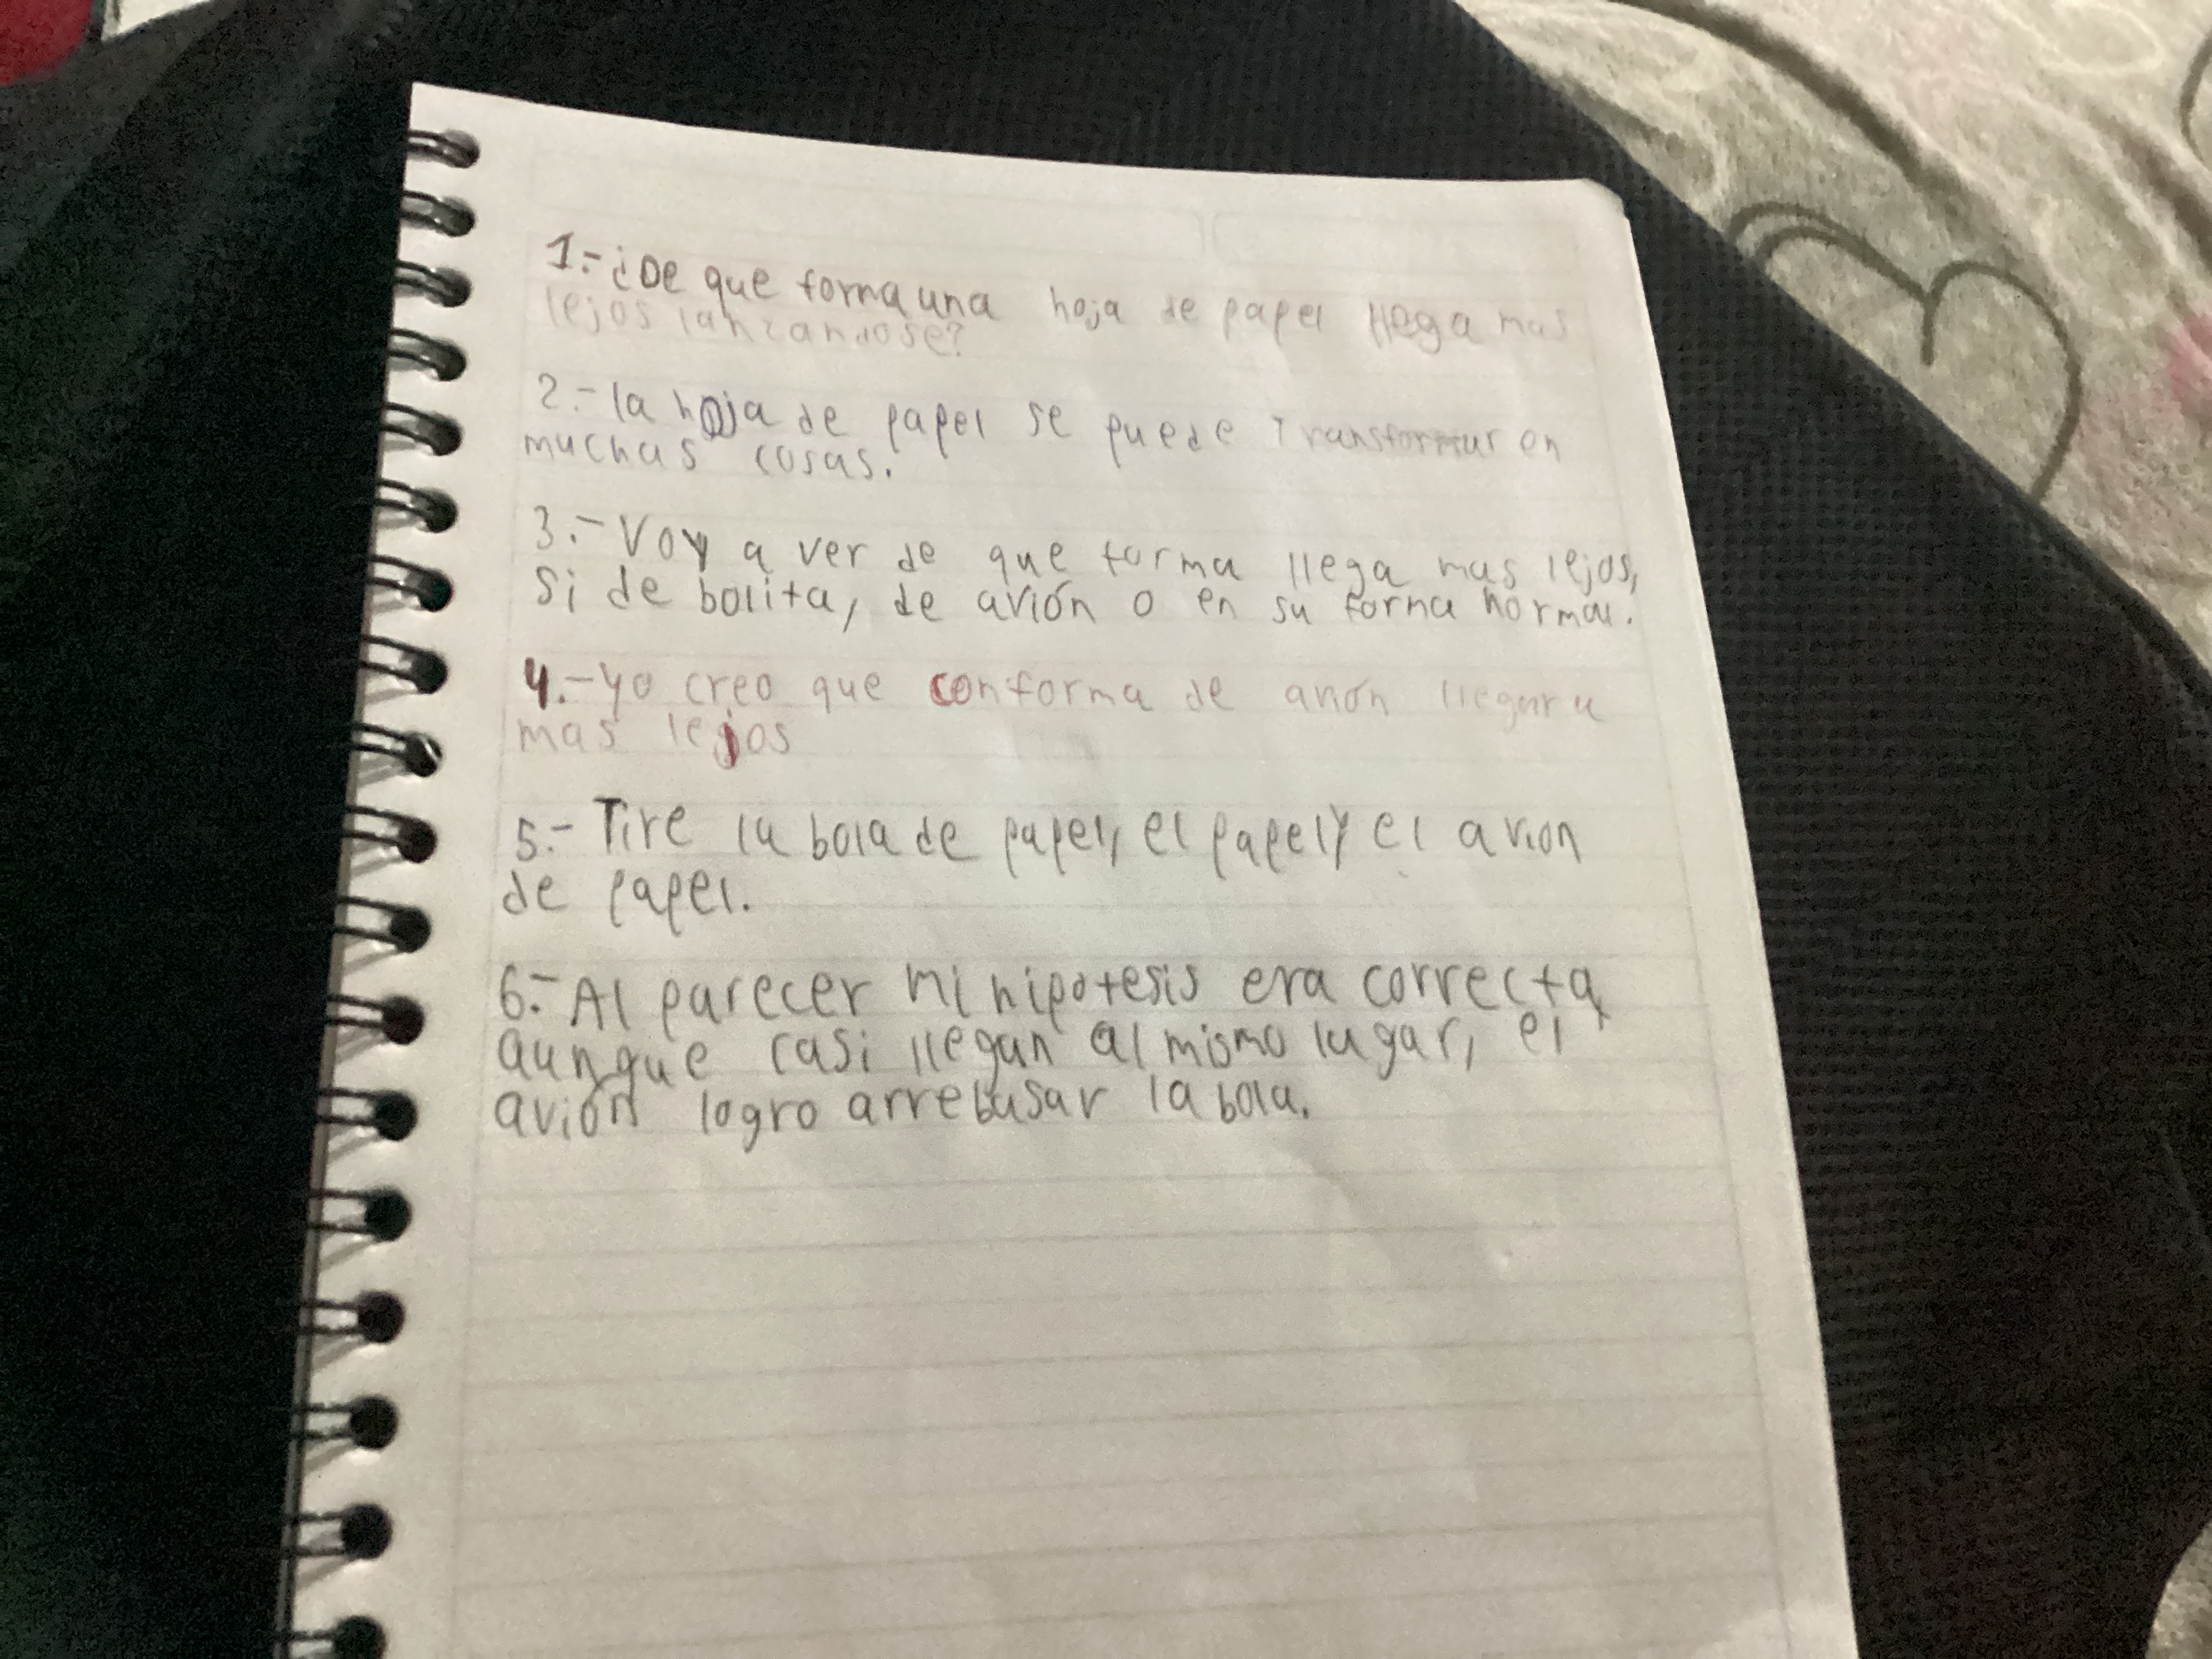 1.- ¿De que forma una hoja de papel llega mas
lejos lanzandose?
2.- la hoja de papel se puede transformar en
muchas cosas.
3.- Voy a ver de que forma llega mas lejos,
si de bolita, de avión o en su forma normal.
4.- yo creo que con forma de avión llegara
mas lejos
5.- Tire la bola de papel, el papel y el avion
de papel.
6.- Al parecer mi hipotesis era correcta,
aunque casi llegan al mismo lugar, el
avión logro arrebasar la bola.